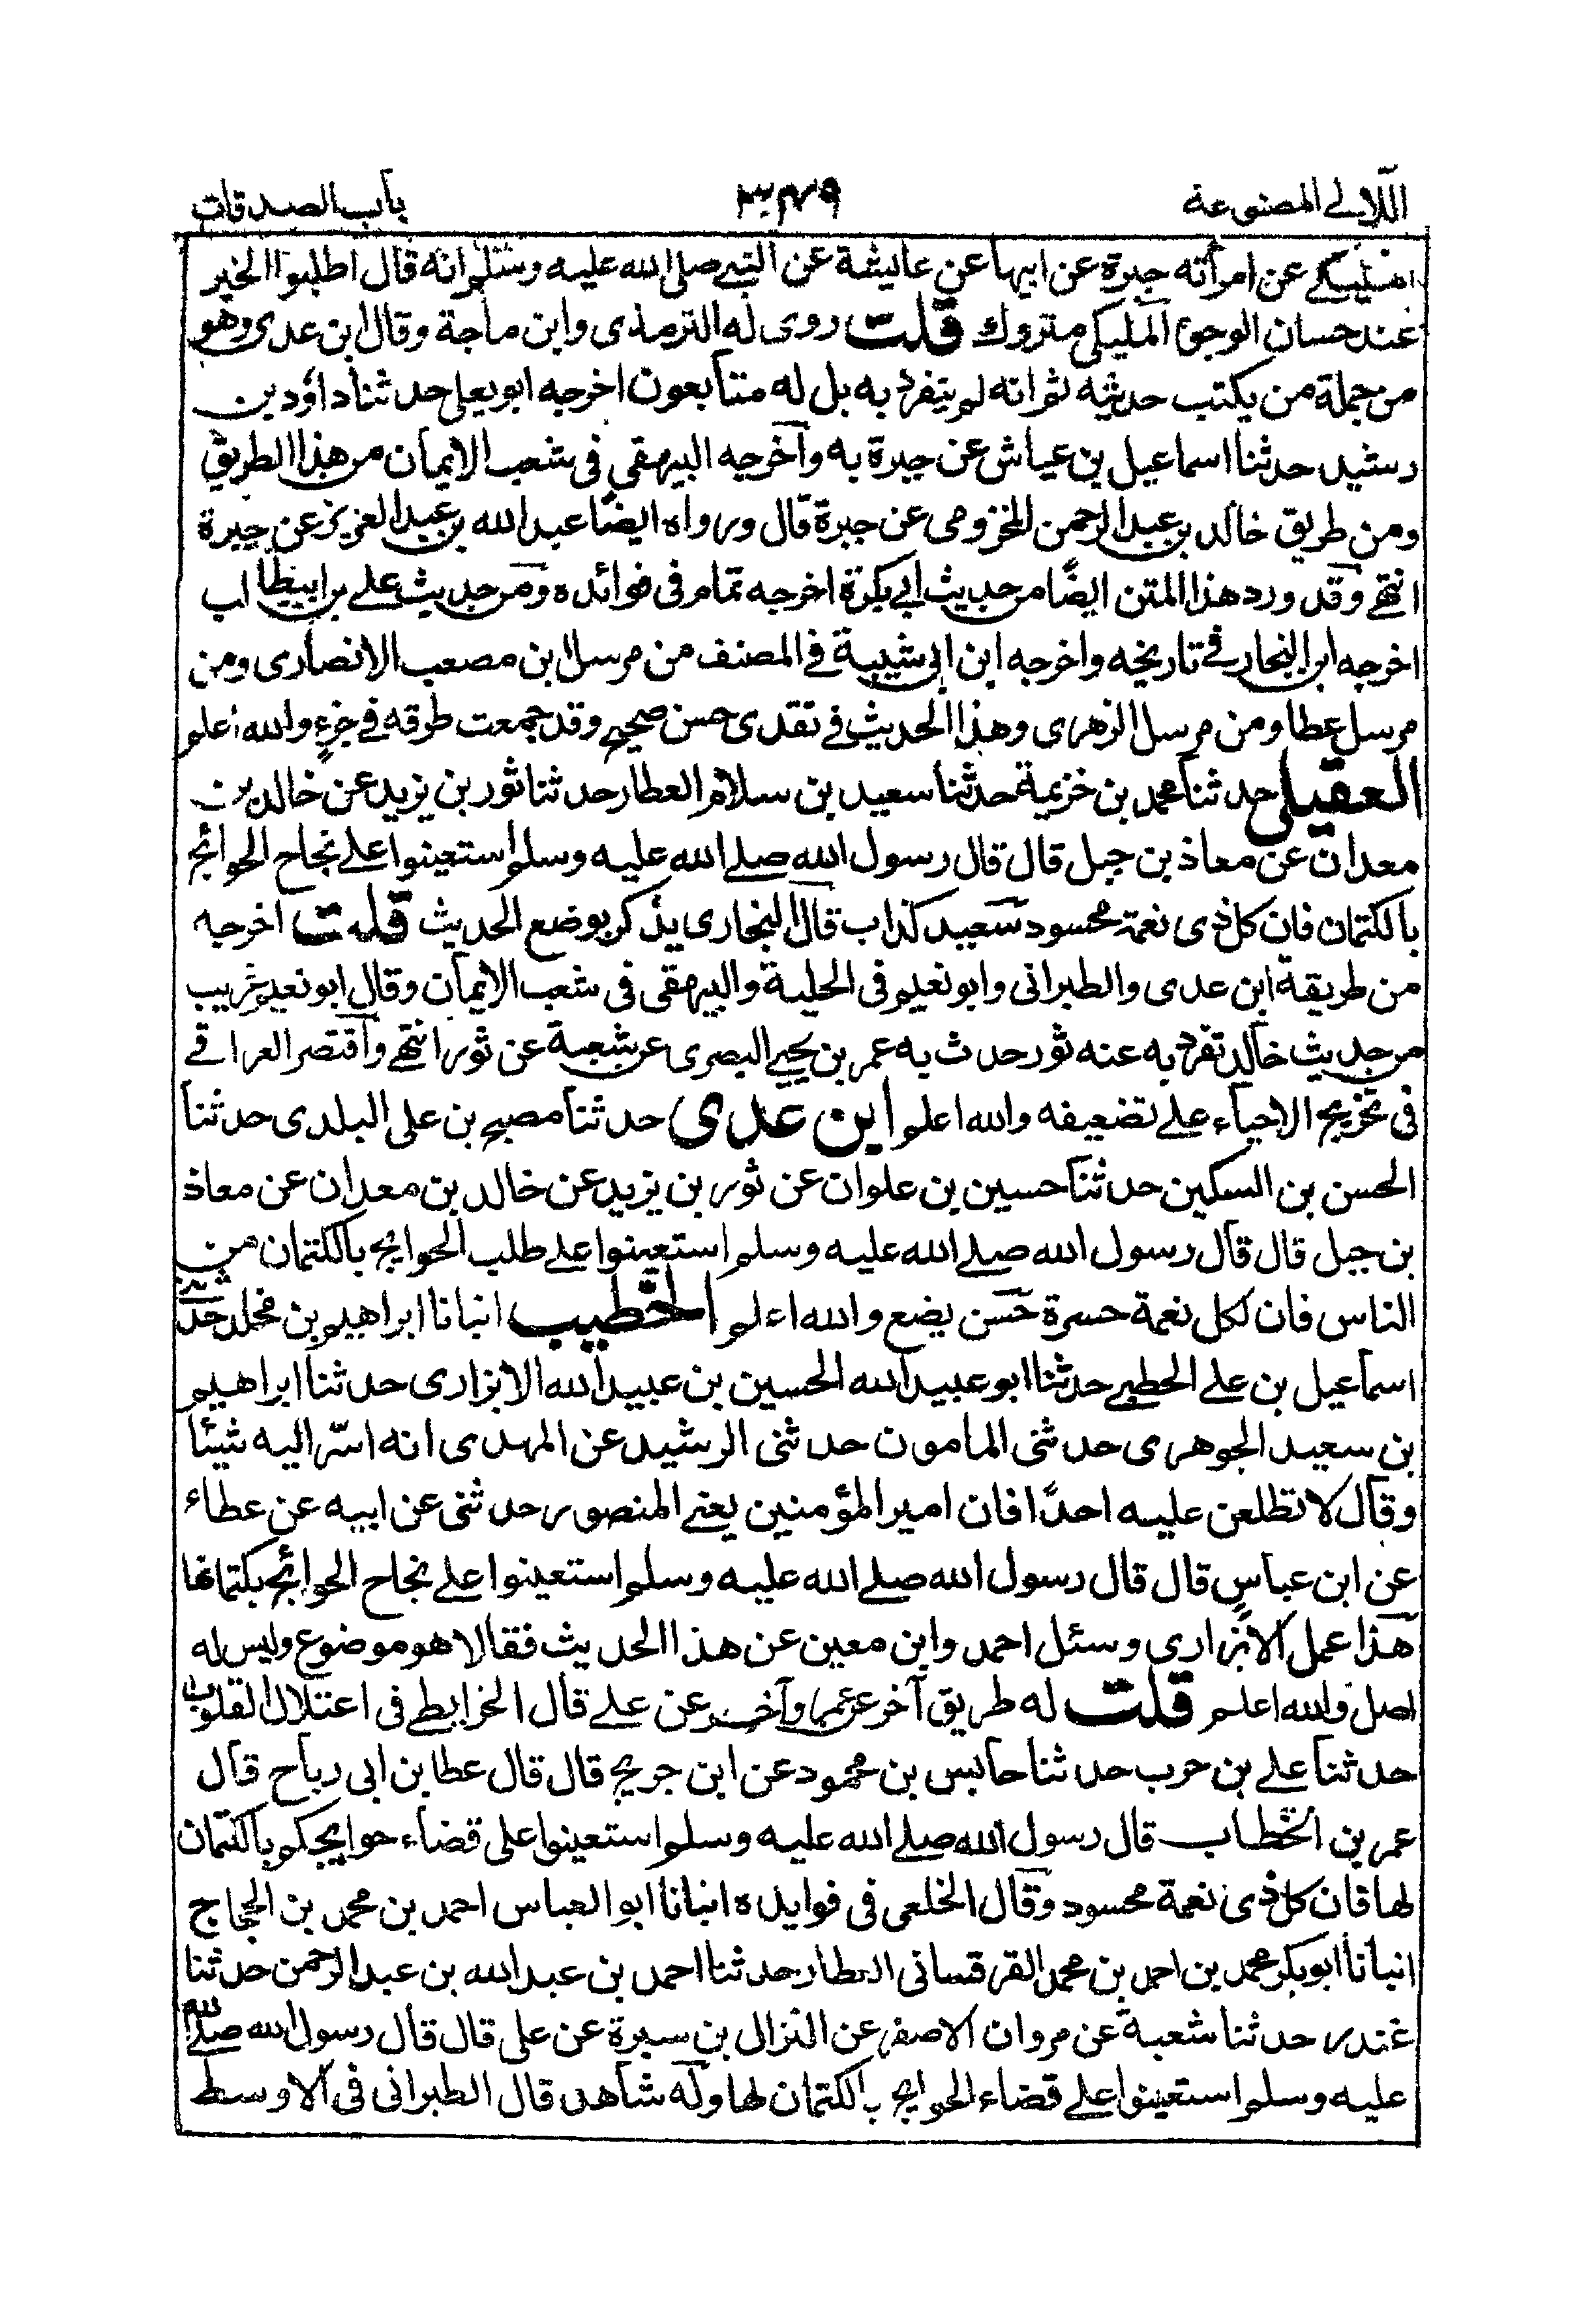 اللآلي المصنوعة ٣٤٩ باب الصدقات
المليكي عن امرأته جبرة عن ابيها عن عايشة عن النبي صلى الله عليه وسلم انه قال اطلبوا الخير
عند حسان الوجوه المليكي متروك قلت روى له الترمذى وابن ماجة وقال ابن عدى وهو
من جملة من يكتب حديثه ثم انه لم يتفرد به بل له متابعون اخرجه ابو يعلى حدثنا داؤد بن
رشيد حدثنا اسماعيل بن عياش عن جبرة به وآخرجه البيهقي فى شعب الايمان من هذا الطريق
ومن طريق خالد بن عبد الرحمن المخزومى عن جبرة قال ورواه ايضًا عبد الله بن عبد العزيز عن جبرة
انتهى وقد ورد هذا المتن ايضًا من حديث ابي بكرة اخرجه تمام فى فوائده ومن حديث علي بن ابيطالب
اخرجه ابن النجار في تاريخه واخرجه ابن ابى شيبة في المصنف من مرسل ابن مصعب الانصارى ومن
مرسل عطا ومن مرسل الزهرى وهذا الحديث في نقدى حسن صحيح وقد جمعت طرقه في جزءٍ والله اعلم
العقيلى حدثنا محمد بن خزيمة حدثنا سعيد بن سلام العطار حدثنا ثور بن يزيد عن خالد بن
معدان عن معاذ بن جبل قال قال رسول الله صلے الله عليه وسلم استعينوا علے نجاح الحوائج
بالكتمان فان كل ذى نعمة محسود سعيد كذاب قال البخارى يذكر بوضع الحديث قلت اخرجه
من طريقة ابن عدى والطبرانى وابو نعيم فى الحلية والبيهقى فى شعب الايمان وقال ابو نعيم غريب
من حديث خالد تفرد به عنه ثور حدث به عمر بن يحيے البصرى عن شعبة عن ثور انتهى وآقتصر العراقے
فى تخريج الاحياء علے تضعيفه والله اعلم ابن عدى حدثنا مصبح بن على البلدى حدثنا
الحسن بن السكين حدثنا حسين بن علوان عن ثور بن يزيد عن خالد بن معدان عن معاذ
بن جبل قال قال رسول الله صلے الله عليه وسلم استعينوا علے طلب الحوايج بالكتمان من
الناس فان لكل نعمة حسرة حسن يضع والله اعلم الخطيب انبانا ابراهيم بن مخلد حدثنا
اسماعيل بن علے الخطبي حدثنا ابو عبيد الله الحسين بن عبيد الله الابزارى حدثنا ابراهيم
بن سعيد الجوهرى حدثنى المامون حدثنى الرشيد عن المهدى انه اسّر اليه شيئا
وقال لا تطلعن عليه احدًا فان امير المؤمنين يعنے المنصور حدثنى عن ابيه عن عطاء
عن ابن عباسٍ قال قال رسول الله صلے الله عليه وسلم استعينوا علے نجاح الحوائج بكتمانها
هذا عمل الابزارى وسئل احمد وابن معين عن هذا الحديث فقالا هو موضوع وليس له
اصل والله اعلم قلت له طريق آخر عن عمر وآخر عن علے قال الخرايطے فى اعتلال القلوب
حدثنا علے بن حرب حدثنا حابس بن محمود عن ابن جريج قال قال عطا بن ابى رباح قال
عمر بن الخطاب قال رسول الله صلے الله عليه وسلم استعينوا على قضاء حوايجكم بالكتمان
لها فان كل ذى نعمة محسود وقال الخلعى فى فوايده انبانا ابو العباس احمد بن محمد بن الحجاج
انبانا ابو بكر محمد بن احمد بن محمد القرقسانى العطار حدثنا احمد بن عبد الله بن عبد الرحمن حدثنا
غندر حدثنا شعبة عن مروان الاصفر عن النزال بن سبرة عن على قال قال رسول الله صلے الله
عليه وسلم استعينوا علے قضاء الحوايج بالكتمان لها وله شاهد قال الطبرانى فى الاوسط